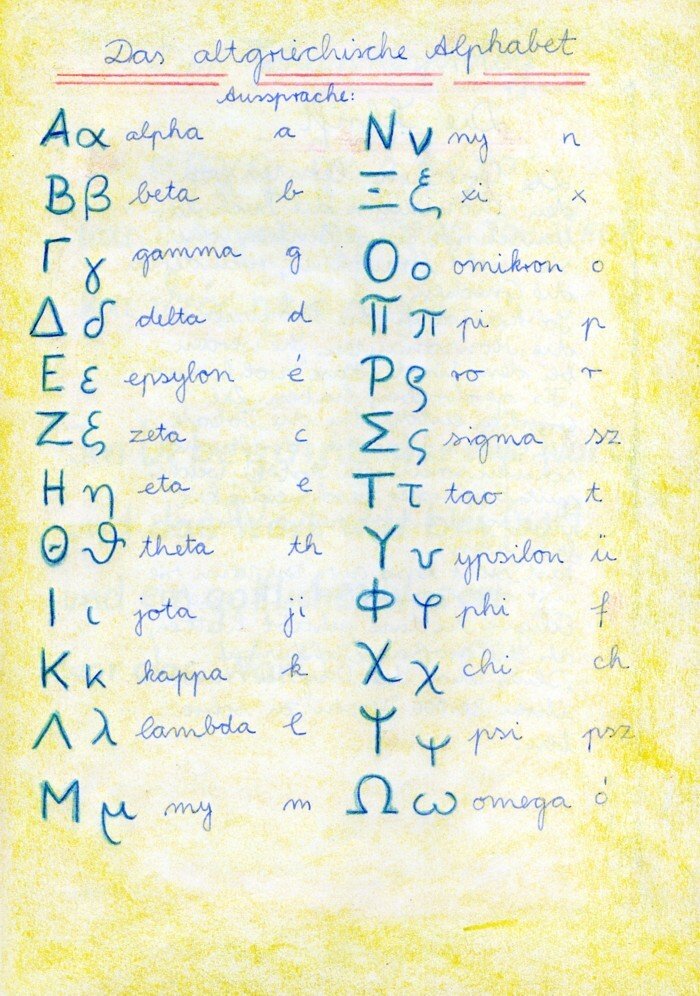 Das altgriechische Alphabet
Aussprache:
Α α alpha a
Β β beta b
Γ γ gamma g
Δ δ delta d
Ε ε epsylon é
Ζ ξ zeta c
Η η eta e
Θ ϑ theta th
Ι ι jota ji
Κ κ kappa k
Λ λ lambda l
Μ μ my m
Ν ν ny n
Ξ ξ xi x
Ο ο omikron o
Π π pi p
Ρ ρ ro r
Σ ς sigma sz
Τ τ tao t
Υ υ ypsilon ü
Φ φ phi f
Χ χ chi ch
Ψ ψ psi psz
Ω ω omega ó